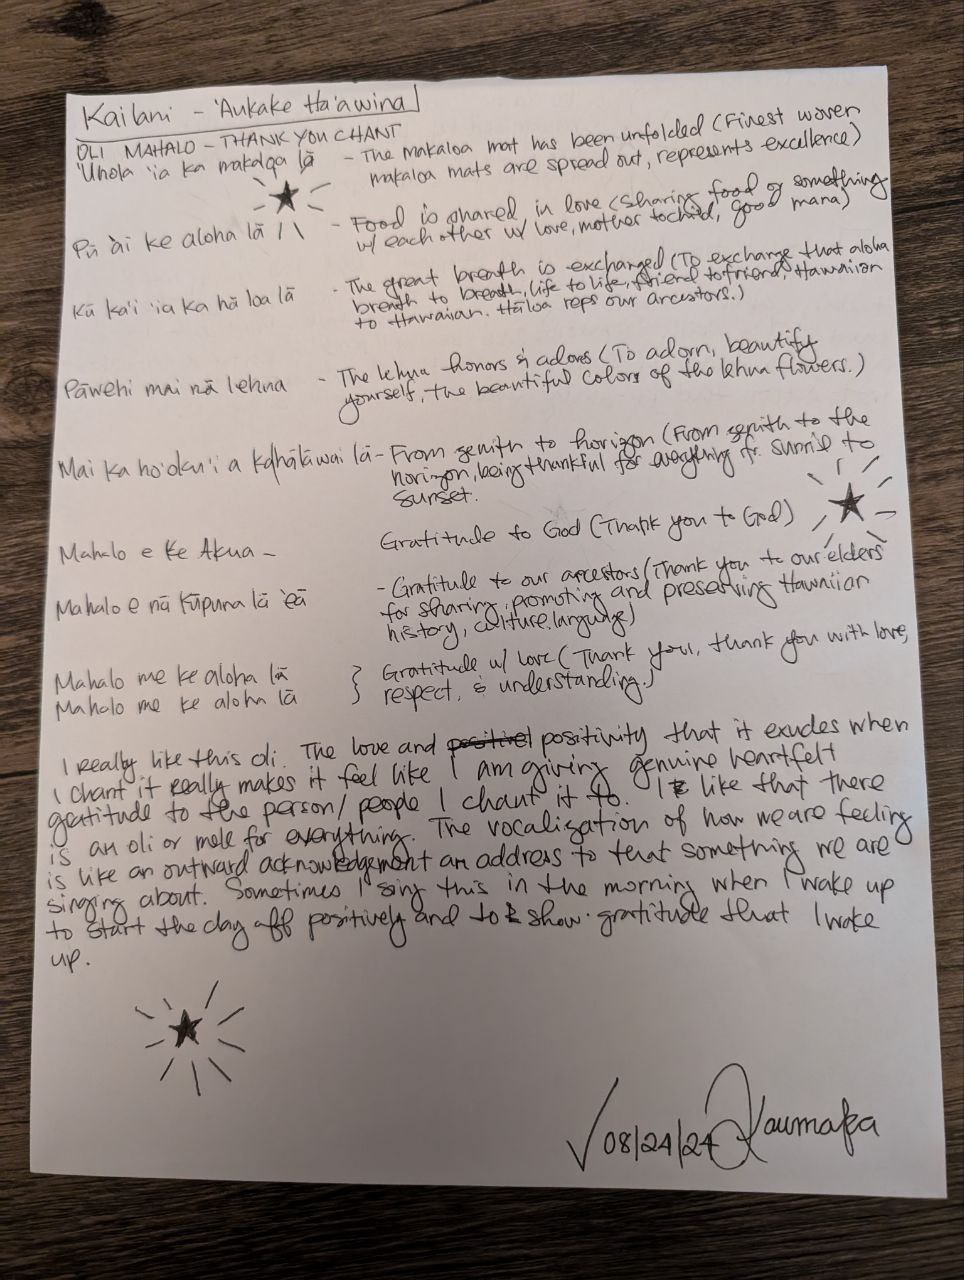 Kailani - 'Aukake Ha'awina
OLI MAHALO - THANK YOU CHANT
'Uhola 'ia ka makaloa lā - The makaloa mat has been unfolded (Finest woven
makaloa mats are spread out, represents excellence)
Pū ài ke aloha lā - Food is shared in love (Sharing food or something
w/ each other w/ love, mother to child, good mana)
Kū ka'i 'ia ka hā loa lā - The great breath is exchanged (To exchange that aloha
breath to breath, life to life, friend to friend, Hawaiian
to Hawaiian. Hāloa reps our ancestors.)
Pāwehi mai nā lehua - The lehua honors & adores (To adorn, beautify
yourself, the beautiful colors of the lehua flowers.)
Mai ka ho'oku'i a kahālāwai lā - From zenith to horizon (From zenith to the
horizon, being thankful for everything fr. sunrise to
sunset.
Mahalo e Ke Akua - Gratitude to God (Thank you to God)
Mahalo e nā Kūpuna lā 'eā - Gratitude to our ancestors (Thank you to our elders
for sharing, promoting and preserving Hawaiian
history, culture, language)
Mahalo me ke aloha lā } Gratitude w/ love (Thank you, thank you with love,
Mahalo me ke aloha lā respect, & understanding.)
I really like this oli. The love and positivity that it exudes when
I chant it really makes it feel like I am giving genuine heartfelt
gratitude to the person/people I chant it to. I like that there
is an oli or mele for everything. The vocalization of how we are feeling
is like an outward acknowledgement an address to that something we are
singing about. Sometimes I sing this in the morning when I wake up
to start the day off positively and to show gratitude that I woke
up.
√ 08/24/24 Kaumaka